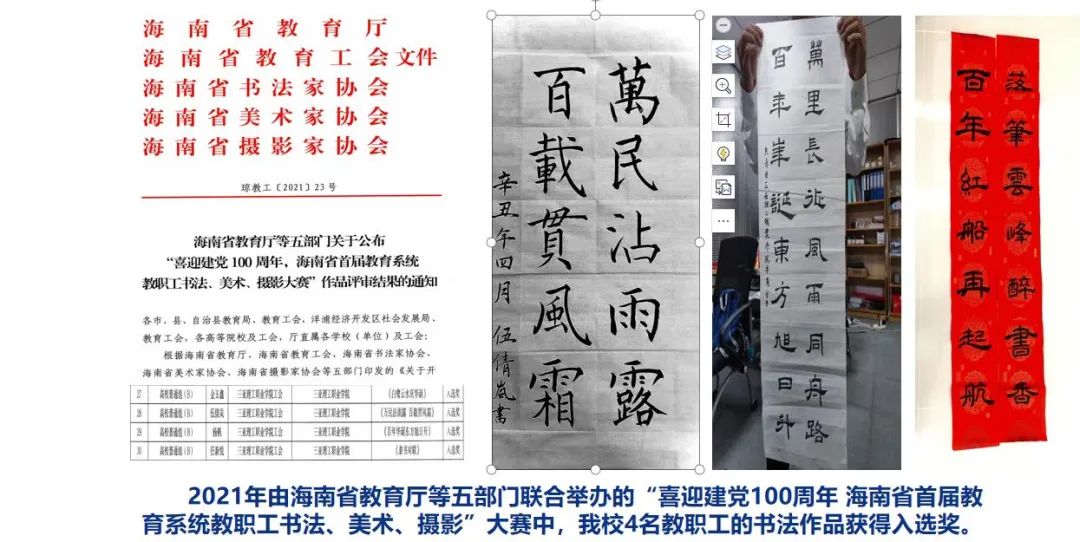 海南省教育厅
海南省教育工会文件
海南省书法家协会
海南省美术家协会
海南省摄影家协会
琼教工〔2021〕23号
海南省教育厅等五部门关于公布
“喜迎建党 100 周年，海南省首届教育系统
教职工书法、美术、摄影大赛”作品评审结果的通知
各市、县、自治县教育局、教育工会，洋浦经济开发区社会发展局、
教育工会，各高等院校及工会，厅直属各学校（单位）及工会：
根据海南省教育厅、海南省教育工会、海南省书法家协会、
海南省美术家协会、海南省摄影家协会等五部门印发的《关于开
27 高校普通组（B） 金玉鑫 三亚理工职业学院工会 三亚理工职业学院 入选奖
28 高校普通组（B） 伍倩岚 三亚理工职业学院工会 三亚理工职业学院 《万民沾雨露 百载贯风霜》 入选奖
29 高校普通组（B） 杨帆 三亚理工职业学院工会 三亚理工职业学院 《百年华诞东方旭日升》 入选奖
30 高校普通组（B） 任新悦 三亚理工职业学院工会 三亚理工职业学院 《隶书对联》 入选奖
萬民沾雨露
百載貫風霜
辛丑年四月 伍倩岚書
萬里長征風雨同舟路
百年華誕東方旭日升
落筆雲峰醉書香
百年紅船再起航
2021年由海南省教育厅等五部门联合举办的“喜迎建党100周年 海南省首届教
育系统教职工书法、美术、摄影”大赛中，我校4名教职工的书法作品获得入选奖。